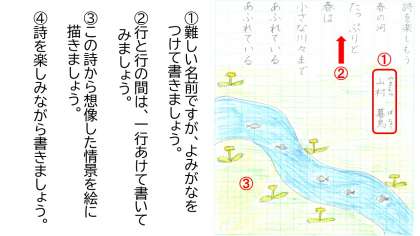 詩を楽しもう
春の河
①
山村 暮鳥
たっぷりと
②
春は
小さな川々まで
あふれている
あふれている
③
①難しい名前ですが、よみがなを
つけて書きましょう。
②行と行の間は、一行あけて書いて
みましょう。
③この詩から想像した情景を絵に
描きましょう。
④詩を楽しみながら書きましょう。